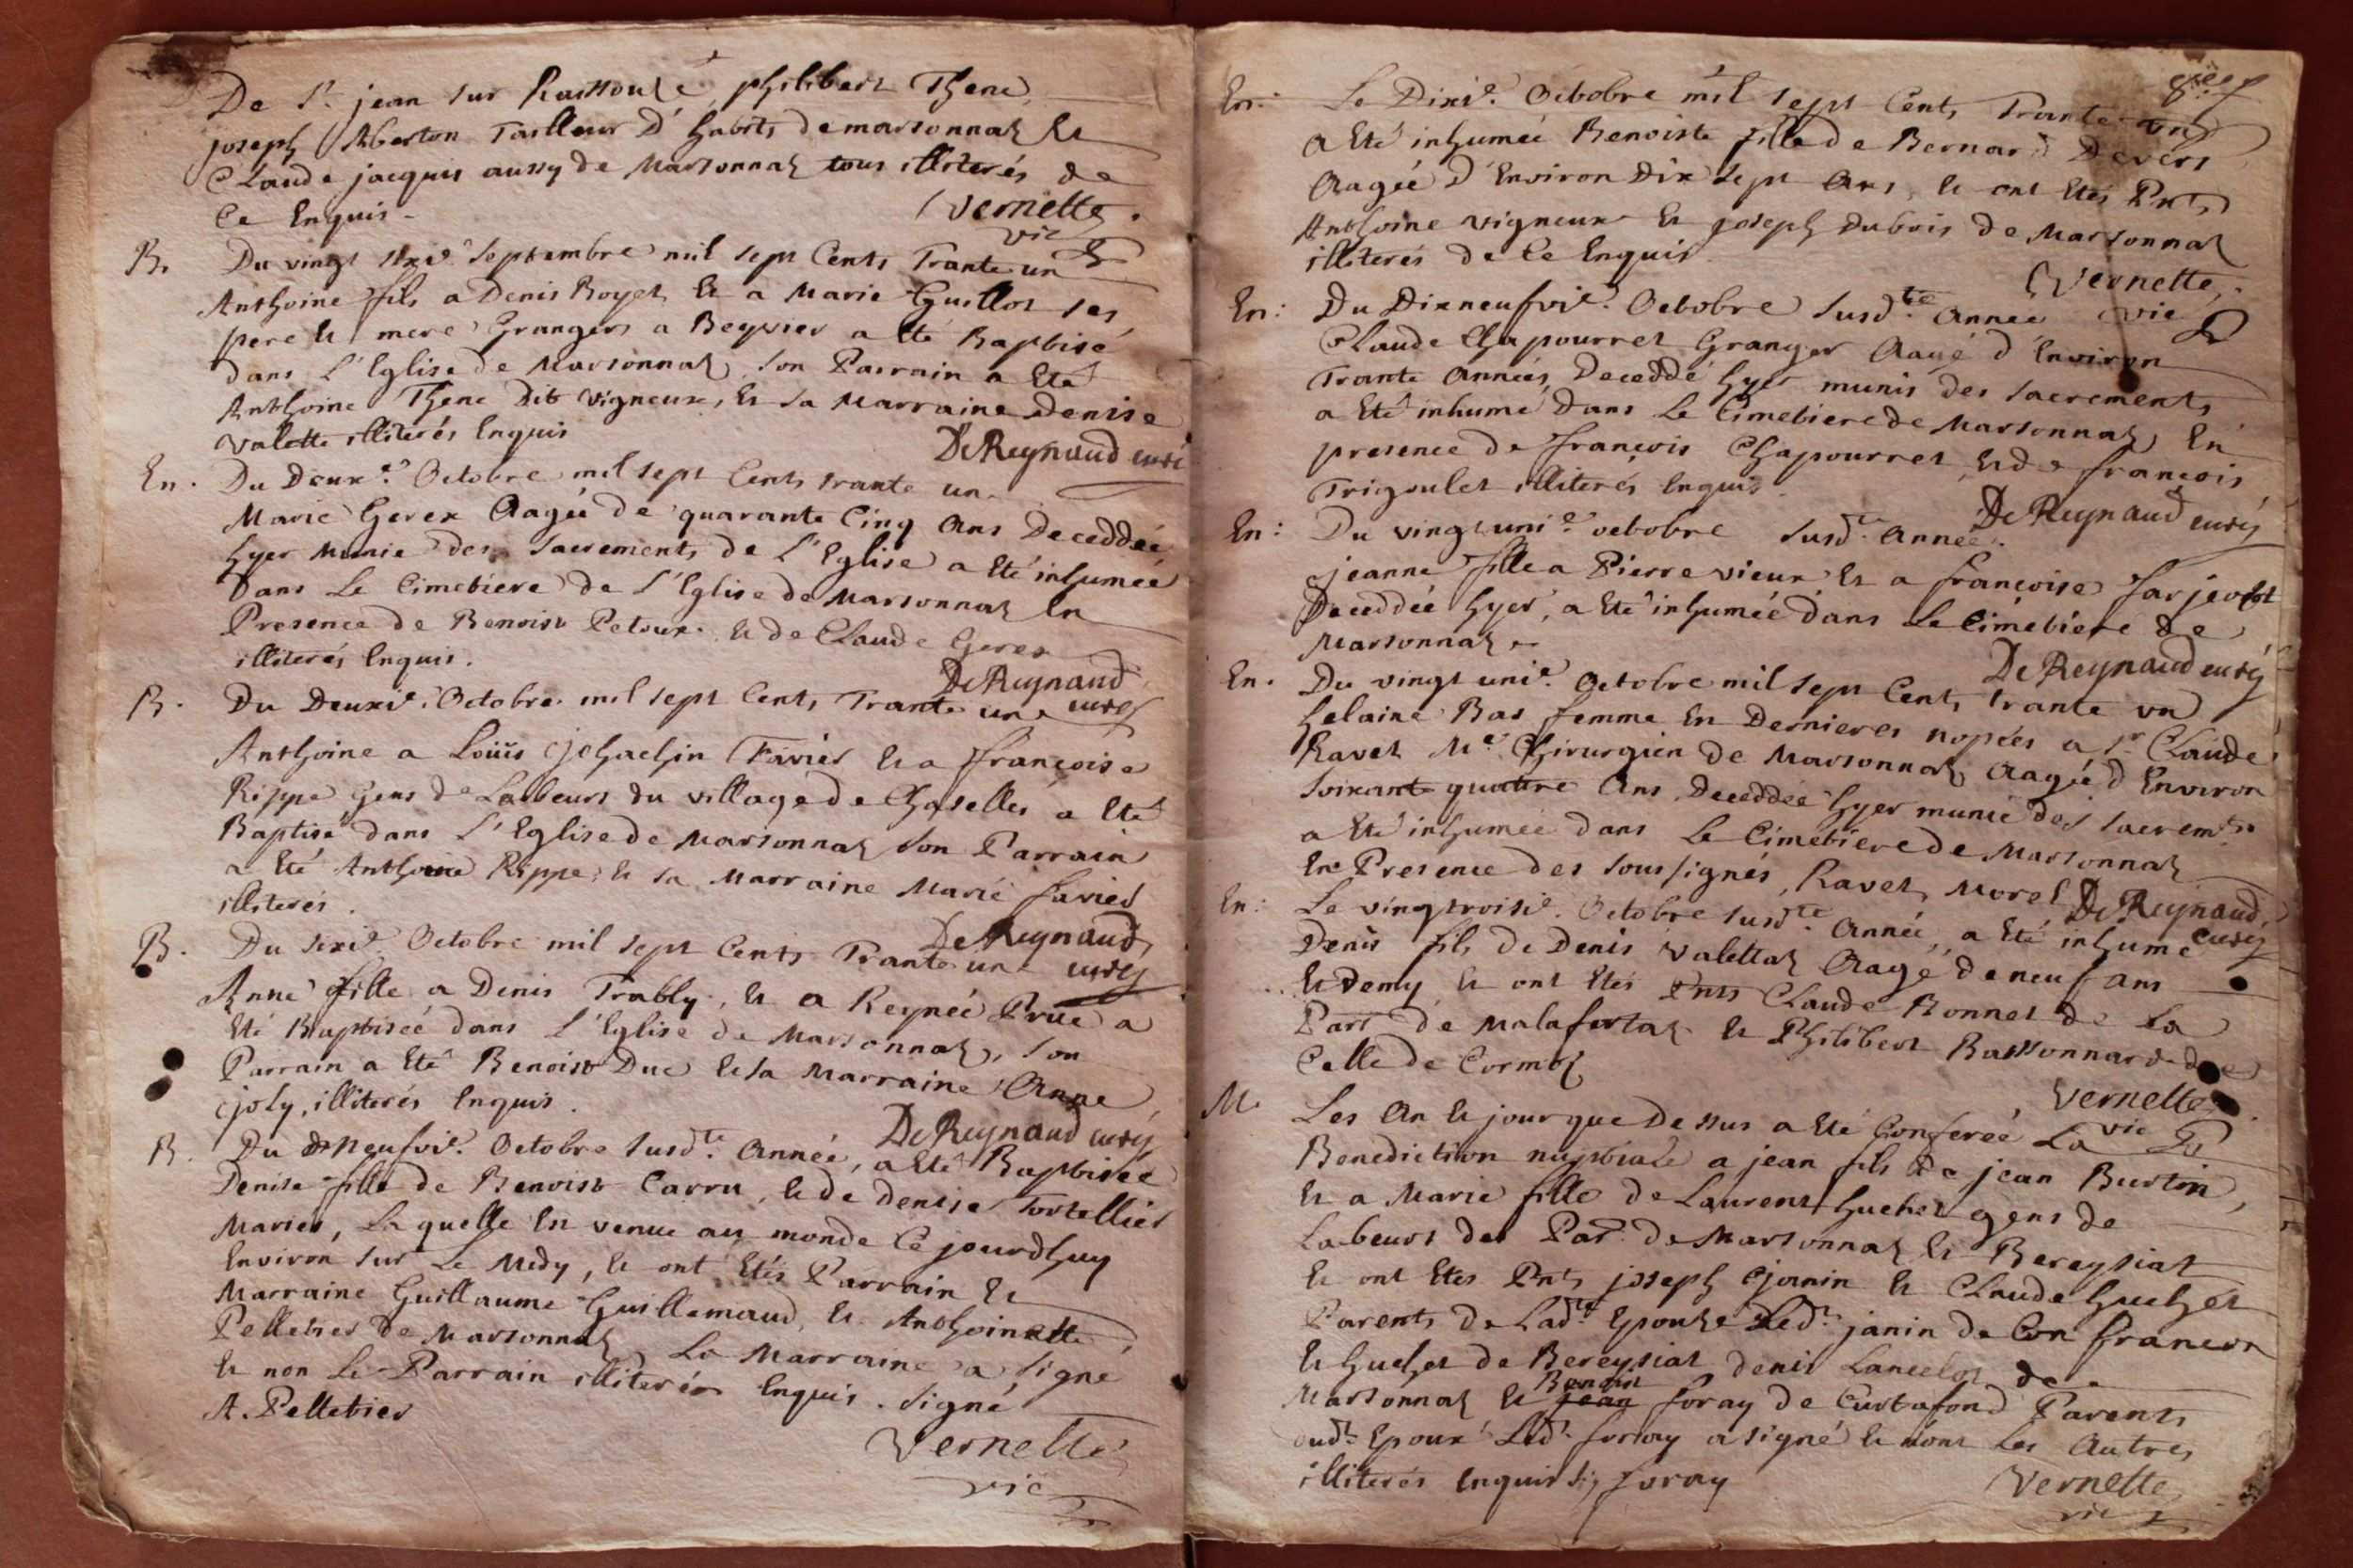 De St. jean sur Raissouze philibert Thene
joseph Alberton Tailleur D'habits de marsonnaz Et
Claude jacquis aussy de Marsonnaz tous illiterés de
Ce Enquis.
Vernette
vic
B. Du vingt sixe. Septembre mil sept Cents Trante un
Anthoine fils a Denis Boyet Et a Marie Guillot ses
pere Et mere Grangers a Beyvier a Eté Baptisé
dans L'Eglise de Marsonnaz, son Parrain a Eté
Anthoine Thene Dit Vigneux, Et sa Marraine Denise
valette illiterés Enquis
De Reynaud curé
En. Du Deuxe. Octobre mil sept Cents trante un
Marie Gerex Aagée de quarante Cinq Ans Deceddée
hyer Munie des Sacrements de L'Eglise a Eté inhumée
Dans Le Cimetiere de L'Eglise de Marsonnaz En
Presence de Benoist Petoux Et de Claude Gerex
illiterés Enquis.
De Reynaud
curé
B. Du Deuxie. Octobre mil sept Cents Trante un
Anthoine a Loüis johachin Favier Et a françoise
Rippe Gens de Labeurs du village de Chaselles a Eté
Baptisé dans L'Eglise de Marsonnaz son Parrain
a Eté Anthoine Rippe, Et sa Marraine Marie favier
illiterés.
De Reynaud
curé
B. Du sixie. Octobre mil sept Cents Trante un
Anne fille a Denis Trably, Et a Reynée Prue a
Eté Baptisée dans L'Eglise de Marsonnaz, son
Parrain a Eté Benoist Duc Et sa Marraine Anne
joly, illiterés Enquis.
De Reynaud curé
B. Du neufvie. Octobre susdte. Année, a Eté Baptisée
Denise fille de Benoist Carru, Et de Denise Tortellier
Mariés, Laquelle Est venue au monde Ce jourdhuy
Environ sur Le Midy, Et ont Etés Parrain Et
Marraine Guillaume Guillemaud, Et Anthoinette
Pelletier de Marsonnaz La Marraine a signé
Et non Le Parrain illiterés Enquis. signé
A. Pelletier
Vernette
vic
En. Le Dixie. Octobre mil sept Cents Trante un
a Eté inhumée Benoiste fille de Bernard Devers
Aagée D'Environ Dix sept Ans, Et ont Etés Pnts
Anthoine vigneux Et joseph Dubois de Marsonnaz
illiterés de Ce Enquis
Vernette
vic
En: Du Dixneufvie. Octobre susdte. Année
Claude Chapourret Granger Aagé d'Environ
Trante Années Deceddé hyer munis des sacrements
a Eté inhumé Dans Le Cimetiere de Marsonnaz En
presence de françois Chapourret Et de françois
Trigoulet illiterés Enquis.
De Reynaud curé
En: Du vingt unie. octobre susdte. Année.
jeanne fille a Pierre vieux Et a françoise farjeolt
Deceddée hyer, a Eté inhumée dans Le Cimetiere de
Marsonnaz.
De Reynaud curé
En. Du vingt unie. Octobre mil sept Cents trante un
helaine Bas femme En Dernieres nopces a Sr. Claude
Ravet Me. Chirurgien de Marsonnaz Aagée d'Environ
soixante quatre Ans Deceddée hyer munie des sacremts
a Eté inhumée dans Le Cimetiere de Marsonnaz
En Presence des soussignés, Ravet, Morel
De Reynaud
curé
En: Le vingtroisie. Octobre susdte. Année, a Eté inhumé
Denis fils de Denis Valettaz Aagé de neuf ans
Et Demy Et ont Etés Pnts Claude Bonnet de La
Parr de Malafretaz Et Philibert Bassonnard de
Celle de Cormoz
Vernette
vic
M. Les An Et jour que Dessus a Eté Conferée La
Benediction nuptiale a jean fils de jean Burtin,
Et a Marie fille de Laurent Guchet gens de
Labeurs des Par. de Marsonnaz Et Bereysiat
Et ont Etés Pnts joseph janin Et Claude Guchet
Parents de Ladte. Epouse Ledt. janin de Confrancon
Et Guchet de Bereysiat denis Lancelot de
Marsonnaz Et Benoist foray de Curtafond Parents
dudt. Epoux Ledt. foray a signé Et nont Les Autres
illiterés Enquis foray
Vernette
vic